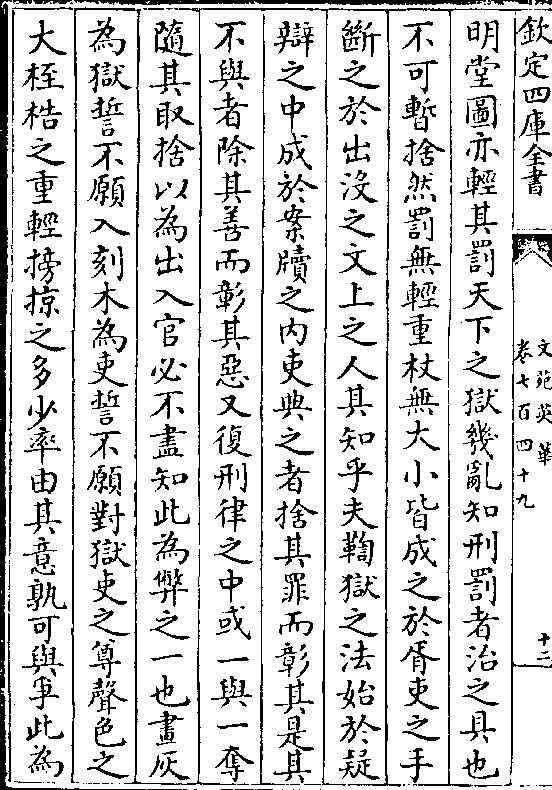 欽定四庫全書
文苑英華
卷七百四十九
十二
明堂圖亦輕其罰天下之獄幾亂知刑罰者治之具也
不可暫捨然罰無輕重杖無大小皆成之於胥吏之手
斷之於出沒之文上之人其知乎夫鞫獄之法始於疑
辯之中成於案牘之內吏典之者捨其罪而彰其是其
不與者除其善而彰其惡又復刑律之中或一與一奪
隨其取捨以為出入官必不盡知此為弊之一也畫灰
為獄誓不願入刻木為吏誓不願對獄吏之尊聲色之
大桎梏之重輕搒掠之多少率由其意孰可與爭此為